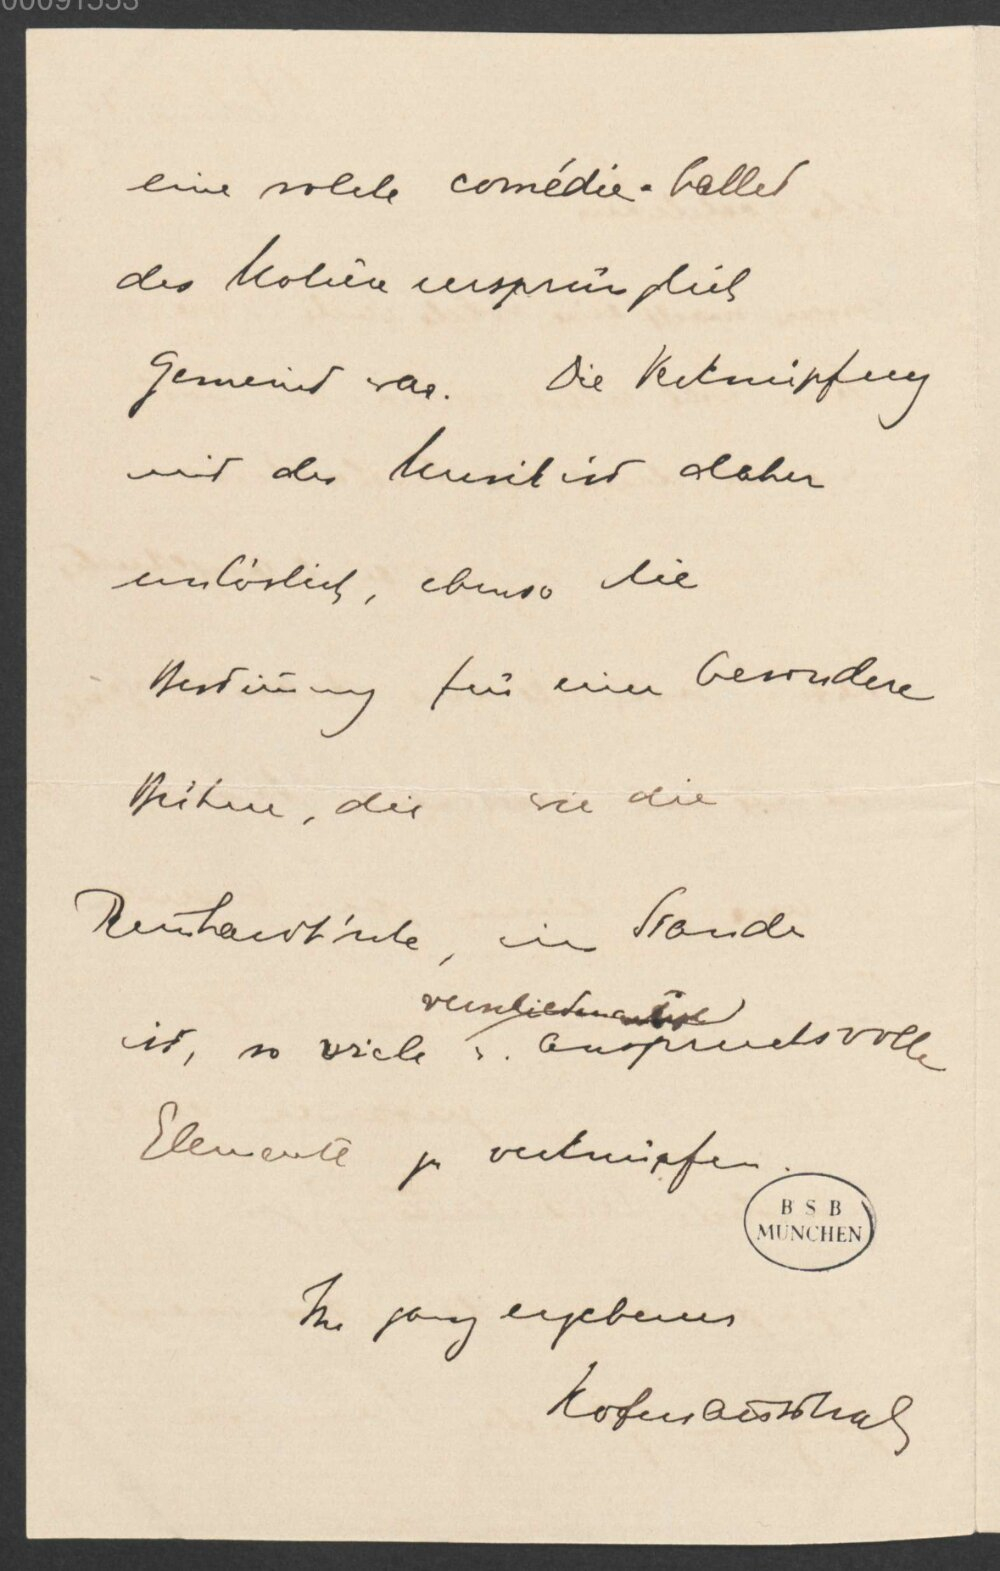 00091353
eine solche comédie-ballet
des Molière ursprünglich
gemeint war. Die Verknüpfung
mit der Musik ist daher
unlöslich, ebenso die
Bestimmung für eine besondere
Bühne, die wie die
Reinhardt'sche, im Stande
verschiedenartige
ist, so viele u. anspruchsvolle
Elemente zu verknüpfen.
BSB
MÜNCHEN
Ihr ganz ergebener
Hofmannsthal